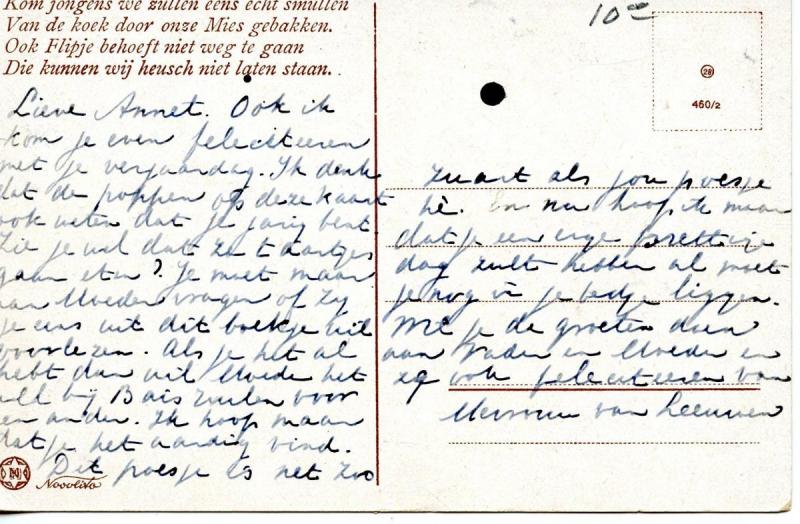 Kom jongens we zullen eens echt smullen
Van de koek door onze Mies gebakken.
Ook Flipje behoeft niet weg te gaan
Die kunnen wij heusch niet laten staan.
Lieve Annet. Ook ik
kom je even feleciteeren
met je verjaardag. Ik denk
dat de poppen op deze kaart
ook weten dat je jarig bent.
Zie je wel dat ze taartjes
gaan eten? Je moet maar
aan Moeder vragen of zij
je eens uit dit boekje wil
voorlezen. Als je het al
hebt dan wil Moeder het
wel bij Bais ruilen voor
een ander. Ik hoop maar
dat je het aardig vind.
Dit poesje is net zoo
Novolito
10
28
460/2
zwart als jou poesje
hè. En nu hoop ik maar
dat je een erge prettige
dag zult hebben al moet
je nog in je bedje liggen.
Wil je de groeten doen
aan Vader en Moeder en
ook feleciteeren van
Mevrouw van Leeuwen